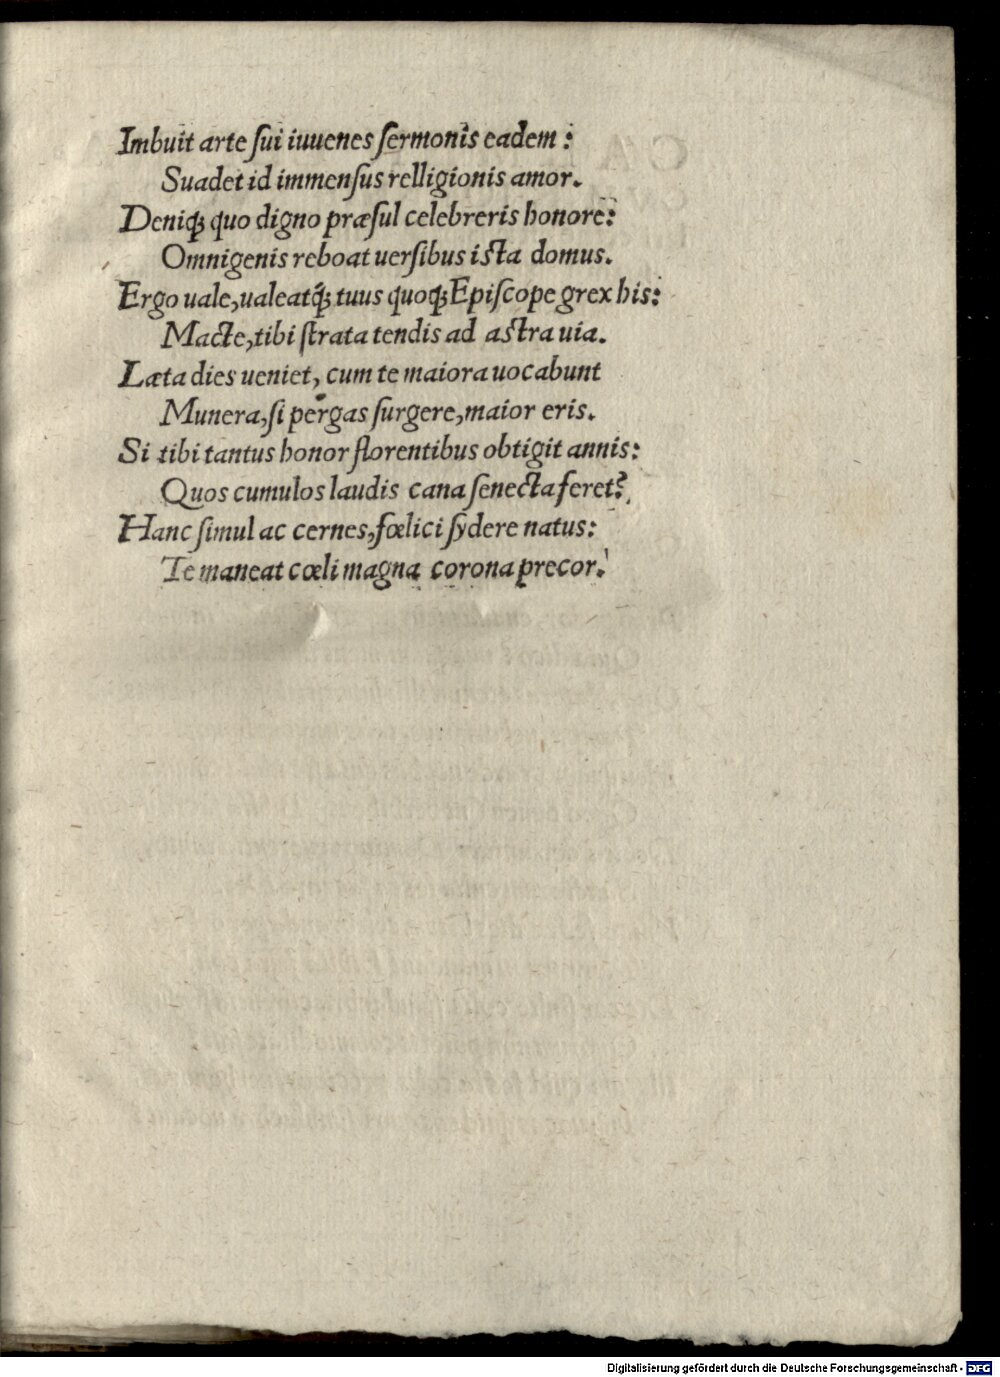 Imbuit arte ſui iuuenes ſermonis eadem:
Suadet id immenſus relligionis amor.
Deniqꝫ quo digno præſul celebreris honore:
Omnigenis reboat uerſibus iſta domus.
Ergo uale, ualeatqꝫ́ tuus quoqꝫ Epiſcope grex his:
Macte, tibi ſtrata tendis ad aſtra uia.
Læta dies ueniet, cum te maiora uocabunt
Munera, ſi pergas ſurgere, maior eris.
Si tibi tantus honor florentibus obtigit annis:
Quos cumulos laudis cana ſenecta feret?
Hanc ſimul ac cernes, fœlici ſydere natus:
Te maneat cœli magna corona precor.
Digitalisierung gefördert durch die Deutsche Forschungsgemeinschaft - DFG